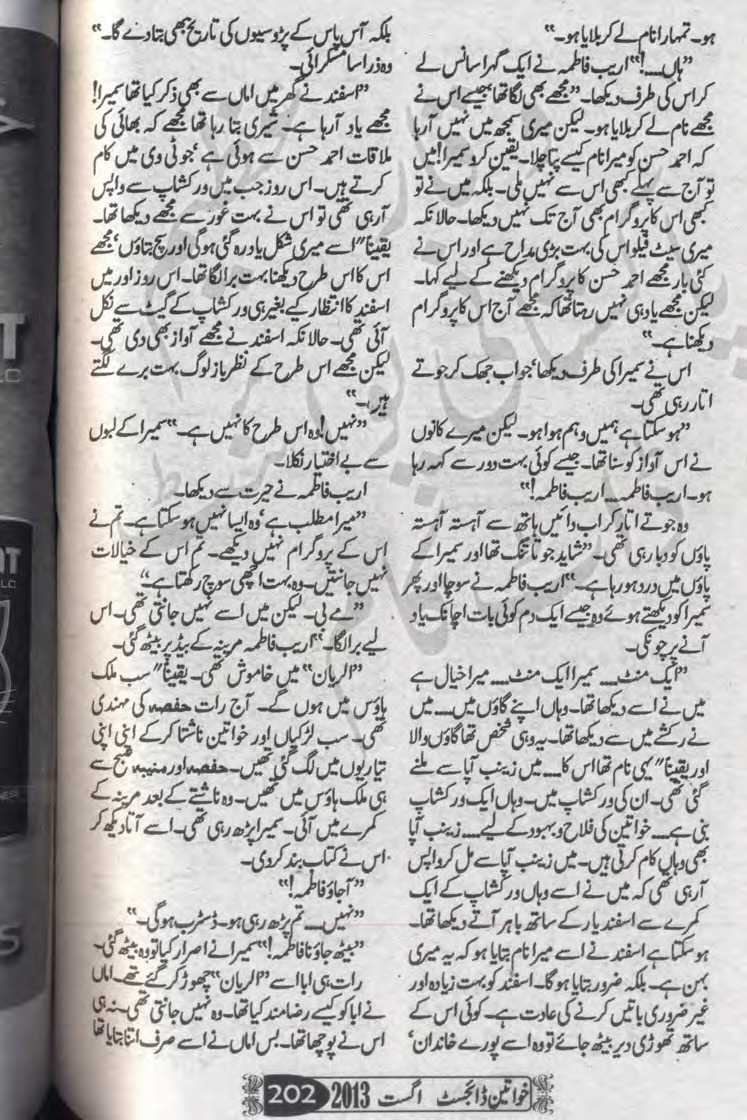 ہو۔ تمہارا نام لے کر بلایا ہو۔"
"ہاں.....!" اریب فاطمہ نے ایک گہرا سانس لے
کر اس کی طرف دیکھا۔ "مجھے بھی لگا تھا جیسے اس نے
مجھے نام لے کر بلایا ہو۔ لیکن میری سمجھ میں نہیں آرہا
کہ احمد حسن کو میرا نام کیسے پتا چلا۔ یقین کرو سمیرا! میں
تو آج سے پہلے کبھی اس سے نہیں ملی۔ بلکہ میں نے تو
کبھی اس کا پروگرام بھی آج تک نہیں دیکھا۔ حالانکہ
میری سیٹ فیلو اس کی بہت بڑی مداح ہے اور اس نے
کئی بار مجھے احمد حسن کا پروگرام دیکھنے کے لیے کہا۔
لیکن مجھے یاد ہی نہیں رہتا تھا کہ مجھے آج اس کا پروگرام
دیکھنا ہے۔"
اس نے سمیرا کی طرف دیکھا، جو اب جھک کر جوتے
اتار رہی تھی۔
"ہو سکتا ہے ہمیں وہم ہوا ہو۔ لیکن میرے کانوں
نے اس آواز کو سنا تھا۔ جیسے کوئی بہت دور سے کہہ رہا
ہو۔ اریب فاطمہ..... اریب فاطمہ!"
وہ جوتے اتار کر اب دائیں ہاتھ سے آہستہ آہستہ
پاؤں کو دبا رہی تھی۔ "شاید جوتا تنگ تھا اور سمیرا کے
پاؤں میں درد ہو رہا ہے۔" اریب فاطمہ نے سوچا اور پھر
سمیرا کو دیکھتے ہوئے وہ جیسے ایک دم کوئی بات اچانک یاد
آنے پر چونکی۔
"ایک منٹ..... سمیرا ایک منٹ..... میرا خیال ہے
میں نے اسے دیکھا تھا۔ وہاں اپنے گاؤں میں..... میں
نے رکشے میں سے دیکھا تھا۔ یہ وہی شخص تھا گاؤں والا
اور یقیناً" یہی نام تھا اس کا..... میں زینب آپا سے ملنے
گئی تھی۔ ان کی ورکشاپ میں۔ وہاں ایک ورکشاپ
بنی ہے..... خواتین کی فلاح و بہبود کے لیے..... زینب آپا
بھی وہاں کام کرتی ہیں۔ میں زینب آپا سے مل کر واپس
آرہی تھی کہ میں نے اسے وہاں ورکشاپ کے ایک
کمرے سے اسفند یار کے ساتھ باہر آتے دیکھا تھا۔
ہو سکتا ہے اسفند نے اسے میرا نام بتایا ہو کہ یہ میری
بہن ہے۔ بلکہ ضرور بتایا ہوگا۔ اسفند کو بہت زیادہ اور
غیر ضروری باتیں کرنے کی عادت ہے۔ کوئی اس کے
ساتھ تھوڑی دیر بیٹھ جائے تو وہ اسے پورے خاندان،
بلکہ آس پاس کے پڑوسیوں کی تاریخ بھی بتا دے گا۔"
وہ ذرا سا مسکرائی۔
"اسفند نے گھر میں اماں سے بھی ذکر کیا تھا سمیرا!
مجھے یاد آرہا ہے۔ شیری بتا رہا تھا مجھے کہ بھائی کی
ملاقات احمد حسن سے ہوئی ہے، جو ٹی وی میں کام
کرتے ہیں۔ اس روز جب میں ورکشاپ سے واپس
آرہی تھی تو اس نے بہت غور سے مجھے دیکھا تھا۔
یقیناً" اسے میری شکل یاد رہ گئی ہوگی اور سچ بتاؤں، مجھے
اس کا اس طرح دیکھنا بہت برا لگا تھا۔ اس روز اور میں
اسفند کا انتظار کیے بغیر ہی ورکشاپ کے گیٹ سے نکل
آئی تھی۔ حالانکہ اسفند نے مجھے آواز بھی دی تھی۔
لیکن مجھے اس طرح کے نظر باز لوگ بہت برے لگتے
ہیں۔"
"نہیں! وہ اس طرح کا نہیں ہے۔" سمیرا کے لبوں
سے بے اختیار نکلا۔
اریب فاطمہ نے حیرت سے دیکھا۔
"میرا مطلب ہے، وہ ایسا نہیں ہو سکتا ہے۔ تم نے
اس کے پروگرام نہیں دیکھے۔ تم اس کے خیالات
نہیں جانتیں۔ وہ بہت اچھی سوچ رکھتا ہے۔"
"مے بی۔ لیکن میں اسے نہیں جانتی تھی۔ اس
لیے برا لگا۔" اریب فاطمہ مرینہ کے بیڈ پر بیٹھ گئی۔
"الریان" میں خاموشی تھی۔ یقیناً" سب ملک
ہاؤس میں ہوں گے۔ آج رات حفصہ کی مہندی
تھی۔ سب لڑکیاں اور خواتین ناشتا کر کے اپنی اپنی
تیاریوں میں لگ گئی تھیں۔ حفصہ اور منیبہ صبح سے
ہی ملک ہاؤس میں تھیں۔ وہ ناشتے کے بعد مرینہ کے
کمرے میں آئی۔ سمیرا پڑھ رہی تھی۔ اسے آتا دیکھ کر
اس نے کتاب بند کر دی۔
"آجاؤ فاطمہ!"
"نہیں..... تم پڑھ رہی ہو۔ ڈسٹرب ہوگی۔"
"بیٹھ جاؤ نا فاطمہ!" سمیرا نے اصرار کیا تو وہ بیٹھ گئی۔
رات ہی ابا اسے "الریان" چھوڑ کر گئے تھے۔ اماں
نے ابا کو کیسے رضامند کیا تھا۔ وہ نہیں جانتی تھی۔ نہ ہی
اس نے پوچھا تھا۔ بس اماں نے اسے صرف اتنا بتایا تھا
خواتین ڈائجسٹ اگست 2013 202